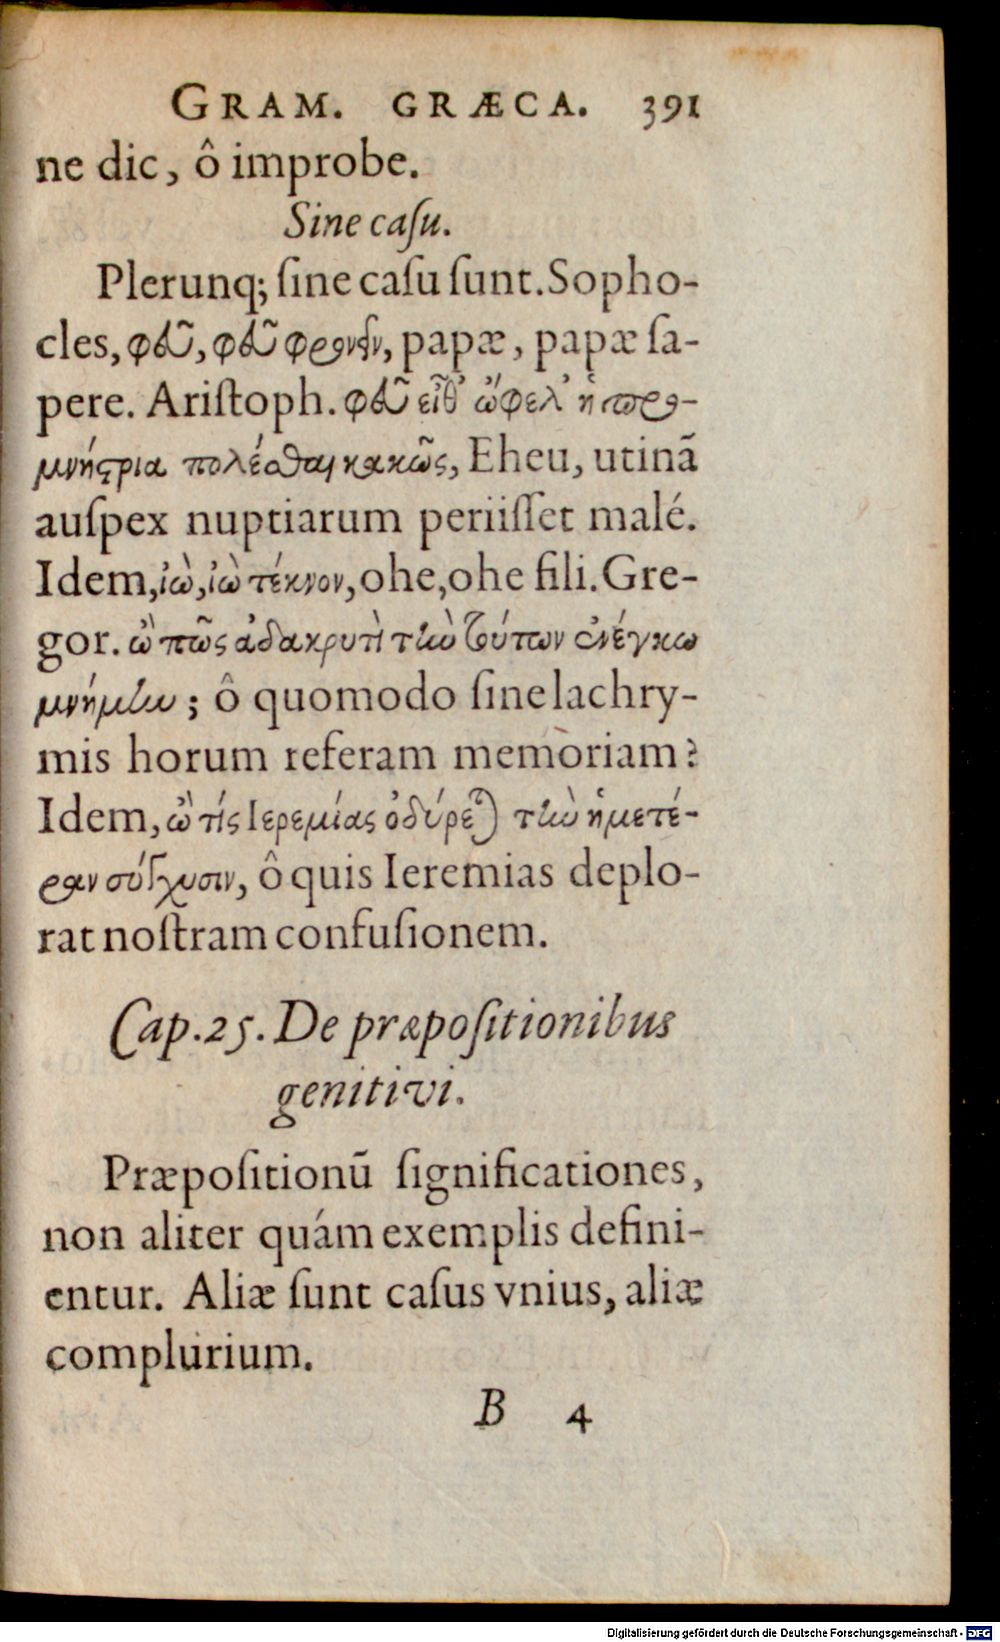 GRAM. GRÆCA. 391
ne dic, ô improbe.
Sine caſu.
Plerunq; ſine caſu ſunt. Sopho-
cles, φεῦ, φεῦ φρονεῖν, papæ, papæ ſa-
pere. Ariſtoph. φεῦ εἶθ᾽ ὤφελ᾽ ἡ προ-
μνήϛρια πολέσθαι κακῶς, Eheu, utinã
auſpex nuptiarum periiſſet malé.
Idem, ἰὼ, ἰὼ τέκνον, ohe, ohe fili. Gre-
gor. ὢ πῶς ἀδακρυτὶ τὴν τούτων ἐνέγκω
μνήμην; ô quomodo ſine lachry-
mis horum referam memoriam?
Idem, ὢ τίς Ιερεμίας ὀδύρεται τὴν ἡμετέ-
ραν σύγχυσιν, ô quis Ieremias deplo-
rat noſtram confuſionem.
Cap. 25. De præpoſitionibus
genitivi.
Præpoſitionũ ſignificationes,
non aliter quám exemplis defini-
entur. Aliæ ſunt caſus vnius, aliæ
complurium.
B 4
Digitalisierung gefördert durch die Deutsche Forschungsgemeinschaft - DFG